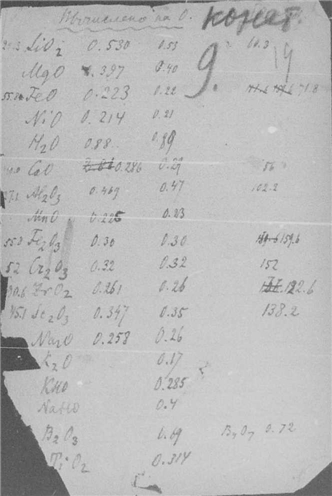 Вычислено на O.
конст.
9.
19
SiO2 0.530 0.53
MgO .397 0.40
FeO 0.223 0.22
NiO 0.214 0.21
H2O 0.88 0.89
CaO 0.286 0.29 56
Al2O3 0.469 0.47 102.2
MnO 0.225 0.23
Fe2O3 0.30 0.30 159.6
52 Cr2O3 0.32 0.32 152
ZrO2 0.261 0.26 122.6
Sc2O3 0.347 0.35 138.2
Na2O 0.258 0.26
K2O 0.17
KHO 0.285
NaHO 0.4
B2O3 0.69 B4O7 0.72
TiO2 0.314